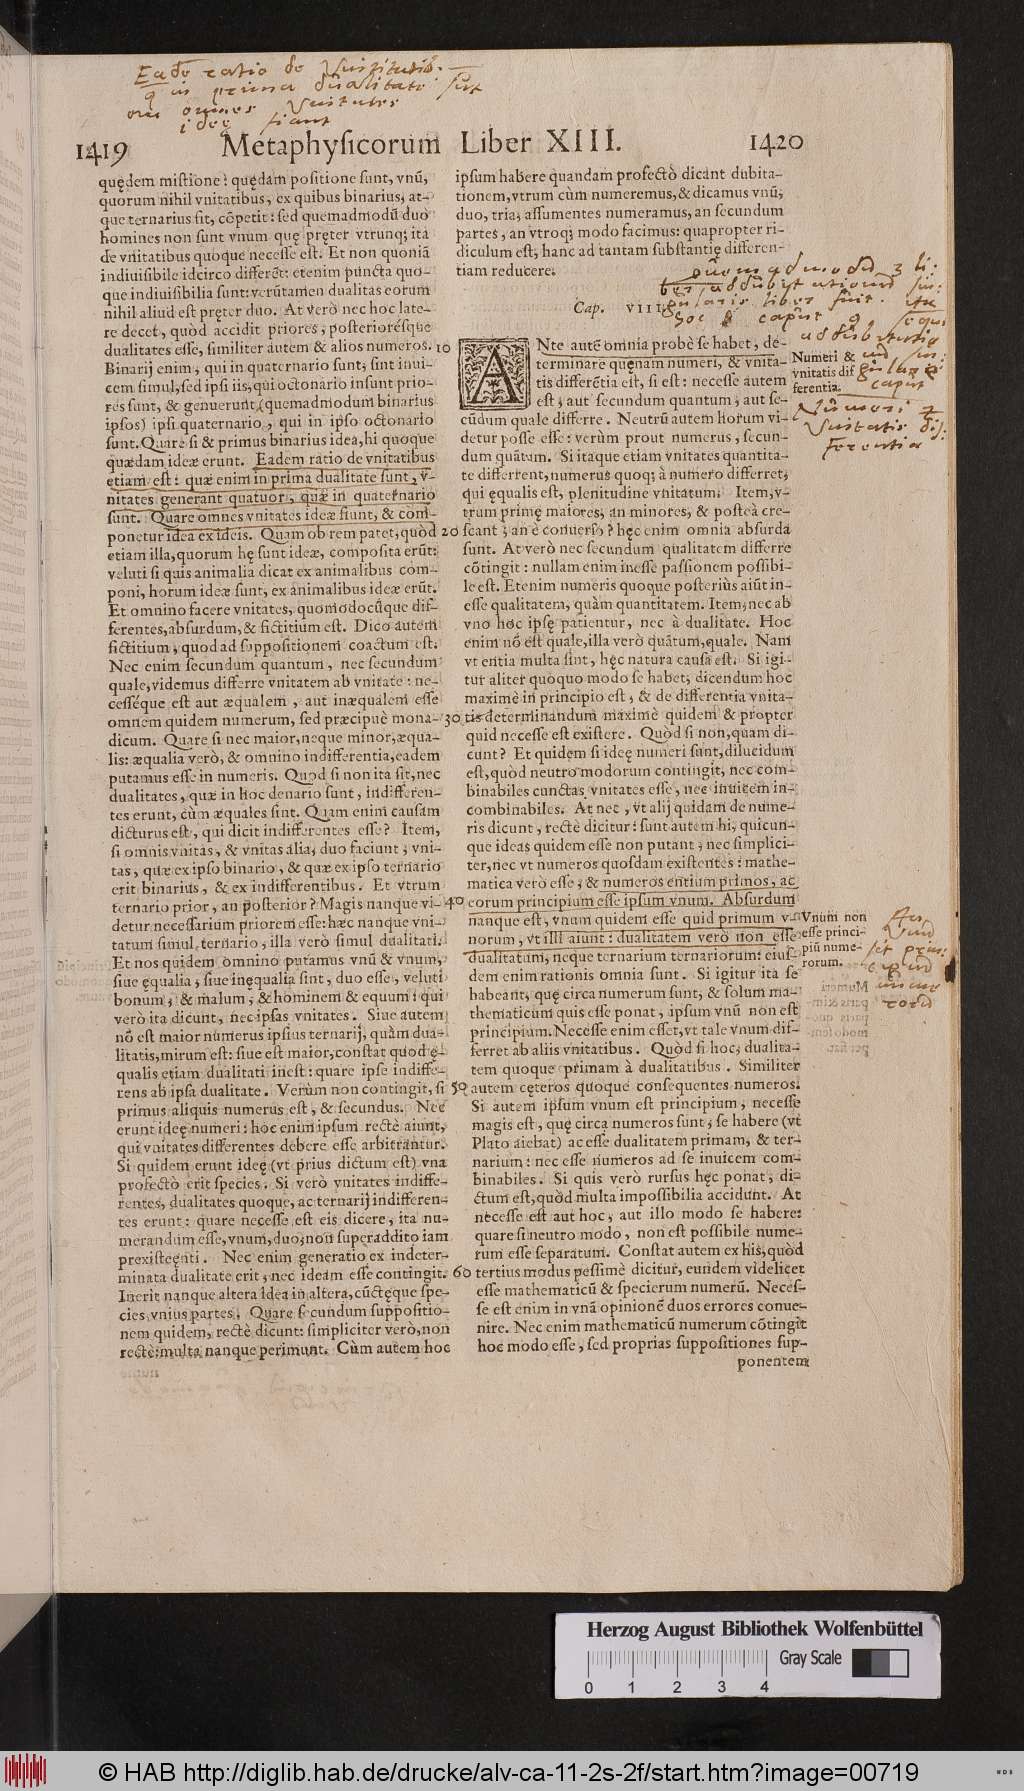 Eadē ratio de Vnitatib.
q̄ in prima dualitate sūt
omnes Vnitates
ideę fiant
1419 Metaphysicorum Liber XIII. 1420
quędem mistione? quędam positione sunt, vnū,
quorum nihil vnitatibus, ex quibus binarius, at-
que ternarius sit, cōpetit: sed quemadmodū duo
homines non sunt vnum quę pręter vtrunq; ita
de vnitatibus quoque necesse est. Et non quoniā
indiuisibile idcirco differēt: etenim puncta quo-
que indiuisibilia sunt: verūtamen dualitas eorum
nihil aliud est pręter duo. At verò nec hoc late-
re decet, quòd accidit priores, posteriorésque
dualitates esse, similiter autem & alios numeros. 10
Binarij enim, qui in quaternario sunt, sint inui-
cem simul, sed ipsi iis, qui octonario insunt prio-
res sunt, & genuerunt (quemadmodum binarius
ipsos) ipsi quaternario, qui in ipso octonario
sunt. Quare si & primus binarius idea, hi quoque
quædam ideæ erunt. Eadem ratio de vnitatibus
etiam est: quæ enim in prima dualitate sunt, v-
nitates generant quatuor, quæ in quaternario
sunt. Quare omnes vnitates ideæ fiunt, & com-
ponetur idea ex ideis. Quam ob rem patet, quòd 20
etiam illa, quorum hę sunt ideæ, composita erūt:
veluti si quis animalia dicat ex animalibus com-
poni, horum ideæ sunt, ex animalibus ideæ erūt.
Et omnino facere vnitates, quomodocūque dif-
ferentes, absurdum, & fictitium est. Dico autem
fictitium, quod ad suppositionem coactum est.
Nec enim secundum quantum, nec secundum
quale, videmus differre vnitatem ab vnitate: ne-
cesséque est aut æqualem, aut inæqualem esse
omnem quidem numerum, sed præcipuè mona- 30
dicum. Quare si nec maior, neque minor, æqua-
lis: æqualia verò, & omnino indifferentia, eadem
putamus esse in numeris. Quod si non ita sit, nec
dualitates, quæ in hoc denario sunt, indifferen-
tes erunt, cùm æquales sint. Quam enim causam
dicturus est, qui dicit indifferentes esse? Item,
si omnis vnitas, & vnitas alia, duo faciunt; vni-
tas, quæ ex ipso binario, & quæ ex ipso ternario
erit binarius, & ex indifferentibus. Et vtrum
ternario prior, an posterior? Magis nanque vi- 40
detur necessarium priorem esse: hæc nanque vni-
tatum simul ternario, illa verò simul dualitati.
Et nos quidem omnino putamus vnū & vnum,
siue ęqualia, siue inęqualia sint, duo esse, veluti
bonum, & malum, & hominem & equum: qui
verò ita dicunt, nec ipsas vnitates. Siue autem
nō est maior numerus ipsius ternarij, quàm dua-
litatis, mirum est: siue est maior, constat quod ę-
qualis etiam dualitati inest: quare ipse indiffe-
rens ab ipsa dualitate. Verùm non contingit, si 50
primus aliquis numerus est, & secundus. Nec
erunt ideę numeri: hoc enim ipsum rectè aiunt,
qui vnitates differentes debere esse arbitrantur.
Si quidem erunt ideę (vt prius dictum est) vna
profectò erit species. Si verò vnitates indiffe-
rentes, dualitates quoque, ac ternarij indifferen-
tes erunt: quare necesse est eis dicere, ita nu-
merandum esse, vnum, duo, non superaddito iam
prexistenti. Nec enim generatio ex indeter-
minata dualitate erit, nec ideam esse contingit. 60
Inerit nanque altera idea in altera, cūctęque spe-
cies, vnius partes. Quare secundum suppositio-
nem quidem, rectè dicunt: simpliciter verò, non
rectè: multa nanque perimunt. Cùm autem hoc
ipsum habere quandam profectò dicant dubita-
tionem, vtrum cùm numeremus, & dicamus vnū,
duo, tria, assumentes numeramus, an secundum
partes, an vtroq; modo facimus: quapropter ri-
diculum est, hanc ad tantam substantię differen-
tiam reducere.
Cap. VIII.
quemadmodū 3 li:
ber
singularis liber fuit. ita
hoc 8 caput
caput
ANte autē omnia probè se habet, de-
terminare quęnam numeri, & vnita-
tis differētia est, si est: necesse autem
est, aut secundum quantum, aut se-
cūdum quale differre. Neutrū autem horum vi-
detur posse esse: verùm prout numerus, secun-
dum quātum. Si itaque etiam vnitates quantita-
te differrent, numerus quoq; à numero differret,
qui ęqualis est, plenitudine vnitatum. Item, v-
trum primę maiores, an minores, & posteà cre-
scant, an è conuerso? hęc enim omnia absurda
sunt. At verò nec secundum qualitatem differre
cōtingit: nullam enim inesse passionem possibi-
le est. Etenim numeris quoque posterius aiūt in-
esse qualitatem, quàm quantitatem. Item, nec ab
vno hoc ipsę patientur, nec à dualitate. Hoc
enim nō est quale, illa verò quātum, quale. Nam
vt entia multa sint, hęc natura causa est. Si igi-
tur aliter quoquo modo se habet, dicendum hoc
maximè in principio est, & de differentia vnita-
tis determinandum maximè quidem & propter
quid necesse est existere. Quòd si non, quam di-
cunt? Et quidem si ideę numeri sunt, dilucidum
est, quòd neutro modorum contingit, nec com-
binabiles cunctas vnitates esse, nec inuicem in-
combinabiles. At nec, vt alij quidam de nume-
ris dicunt, rectè dicitur: sunt autem hi, quicun-
que ideas quidem esse non putant, nec simplici-
ter, nec vt numeros quosdam existentes: mathe-
matica verò esse, & numeros entium primos, ac
eorum principium esse ipsum vnum. Absurdum
nanque est, vnum quidem esse quid primum v-
norum, vt illi aiunt: dualitatem verò non esse
dualitatum, neque ternarium ternariorum: eius-
dem enim rationis omnia sunt. Si igitur ita se
habeant, quę circa numerum sunt, & solum ma-
thematicum quis esse ponat, ipsum vnū non est
principium. Necesse enim esset, vt tale vnum dif-
ferret ab aliis vnitatibus. Quòd si hoc, dualita-
tem quoque primam à dualitatibus. Similiter
autem cęteros quoque consequentes numeros.
Si autem ipsum vnum est principium, necesse
magis est, quę circa numeros sunt, se habere (vt
Plato aiebat) ac esse dualitatem primam, & ter-
narium: nec esse numeros ad se inuicem com-
binabiles. Si quis verò rursus hęc ponat, di-
ctum est, quòd multa impossibilia accidunt. At
necesse est aut hoc, aut illo modo se habere:
quare si neutro modo, non est possibile nume-
rum esse separatum. Constat autem ex his, quòd
tertius modus pessimè dicitur, eundem videlicet
esse mathematicū & specierum numerū. Neces-
se est enim in vnā opinionē duos errores conue-
nire. Nec enim mathematicū numerum cōtingit
hoc modo esse, sed proprias suppositiones sup-
ponentem
Numeri &
vnitatis dif
ferentia.
Numeri &
Vnitatis dif:
ferentia
Vnum non
esse princi-
piū nume-
rorum.
An
Vnū
sit prin:
cipiū
nume
rorū
Herzog August Bibliothek Wolfenbüttel
Gray Scale
0 1 2 3 4
© HAB http://diglib.hab.de/drucke/alv-ca-11-2s-2f/start.htm?image=00719